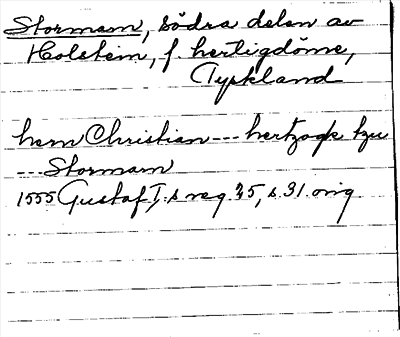 Stormarn, södra delen av
Holstein, f. hertigdöme,
Tyskland
hern Christian --- hertzogk tzu
--- Stormarn
1555 Gustaf I:s reg. 25, s. 31. orig